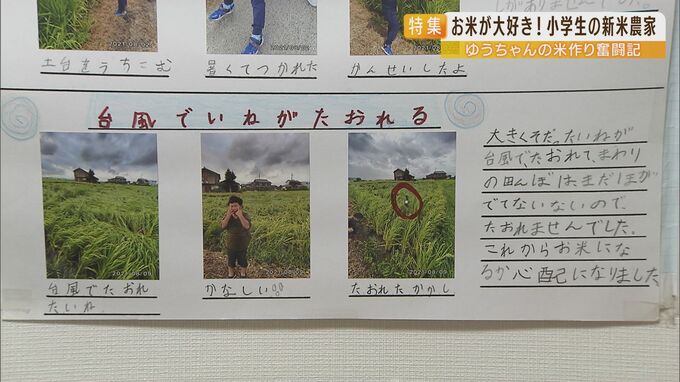 特集 お米が大好き！小学生の新米農家
ゆうちゃんの米作り奮闘記
2021/08/02
土台をうちこむ
暑くてつかれた
かんせいしたよ
台風でいねがたおれる
2021/08/09
2021/08/09
2021/08/09
台風でたおれ
たいね。
かなしい
たおれたかかし
大きくそだったいねが
台風でたおれて、まわり
の田んぼはまだほが
でてないないので、
たおれませんでした。
これからお米にな
るか心配になりました